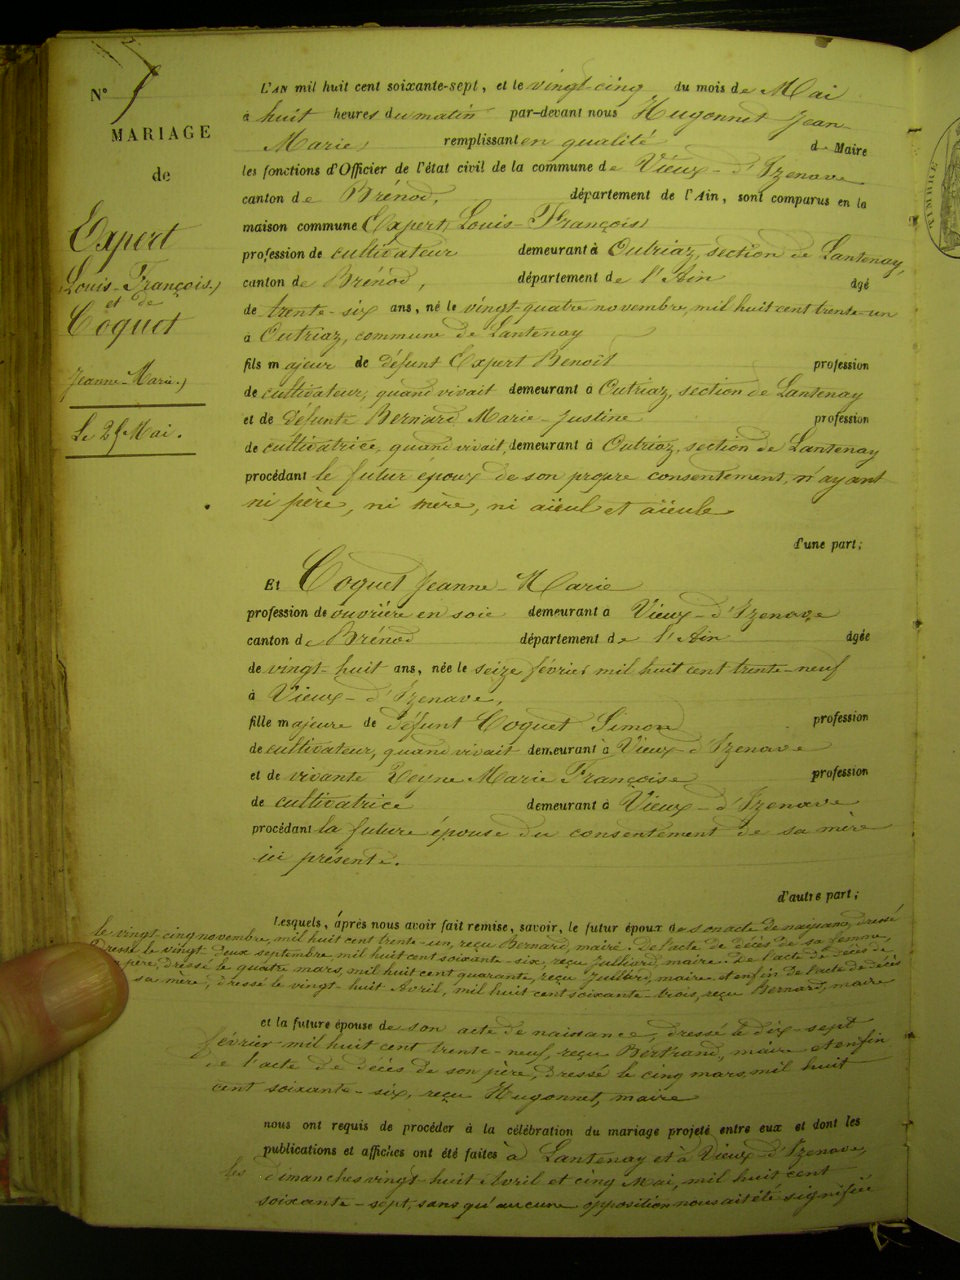 N° 5
MARIAGE
de
Expert
Louis-François
et de
Coquet
Jeanne-Marie
Le 25 Mai.
L'AN mil huit cent soixante-sept, et le vingt-cinq du mois de Mai
à huit heures du matin par-devant nous Hugonnet Jean-
Marie, remplissant en qualité de Maire
les fonctions d'Officier de l'état civil de la commune de Vieux-d'Izenave
canton de Brénod, département de l'Ain, sont comparus en la
maison commune Expert, Louis-François
profession de cultivateur demeurant à Outriaz, section de Lantenay,
canton de Brénod, département de l'Ain âgé
de trente-six ans, né le vingt-quatre novembre, mil huit cent trente-un
à Outriaz, commune de Lantenay
fils majeur de défunt Expert Benoît profession
de cultivateur, quand vivait demeurant à Outriaz, section de Lantenay
et de défunte Bernard Marie-Justine profession
de cultivatrice, quand vivait, demeurant à Outriaz, section de Lantenay
procédant le futur époux de son propre consentement, n'ayant
ni père, ni mère, ni aïeul et aïeule
d'une part;
Et Coquet Jeanne-Marie
profession de ouvrière en soie demeurant à Vieux-d'Izenave
canton de Brénod département de l'Ain âgée
de vingt-huit ans, née le seize février mil huit cent trente-neuf
à Vieux-d'Izenave,
fille majeure de défunt Coquet Simon profession
de cultivateur, quand vivait demeurant à Vieux-d'Izenave
et de vivante Marie Françoise profession
de cultivatrice demeurant à Vieux-d'Izenave
procédant la future épouse du consentement de sa mère
ici présente.
d'autre part;
Lesquels, après nous avoir fait remise, savoir, le futur époux de son acte de naissance, dressé
le vingt-cinq novembre, mil huit cent trente-un, reçu Bernard, maire. De l'acte de décès de sa femme,
dressé le vingt-deux septembre, mil huit cent soixante-six, reçu Julliard, maire. De l'acte de décès de
père, dressé le quatre mars, mil huit cent quarante, reçu Julliard, maire et enfin de l'acte de décès
sa mère, dressé le vingt-huit Avril, mil huit cent soixante-trois, reçu Bernard, maire
et la future épouse de son acte de naissance, dressé à dix-sept
février mil huit cent trente-neuf, reçu Bertrand, maire et enfin
de l'acte de décès de son père, dressé le cinq mars, mil huit
cent soixante-six, reçu Hugonnet, maire
nous ont requis de procéder à la célébration du mariage projeté entre eux et dont les
publications et affiches ont été faites à Lantenay et à Vieux-d'Izenave,
les dimanches vingt-huit Avril et cinq Mai, mil huit cent
soixante-sept, sans qu'aucune opposition nous ait été signifiée
TIMBRE